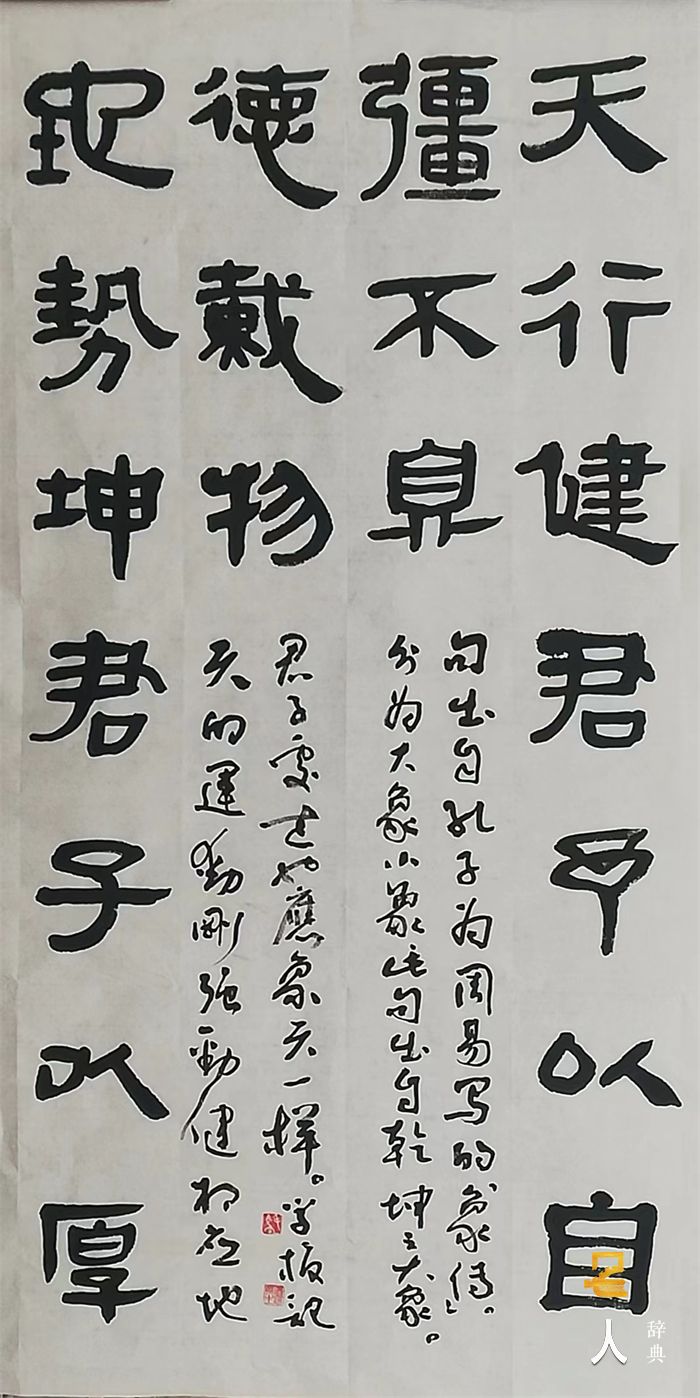 天行健君子以自
彊不息
句出自孔子为周易写的《象传》。
分为大象小象此句出自乾坤之大象。
地勢坤君子以厚
德載物
天的運動剛强勁健相应地
君子處世也應象天一样。
名人辞典